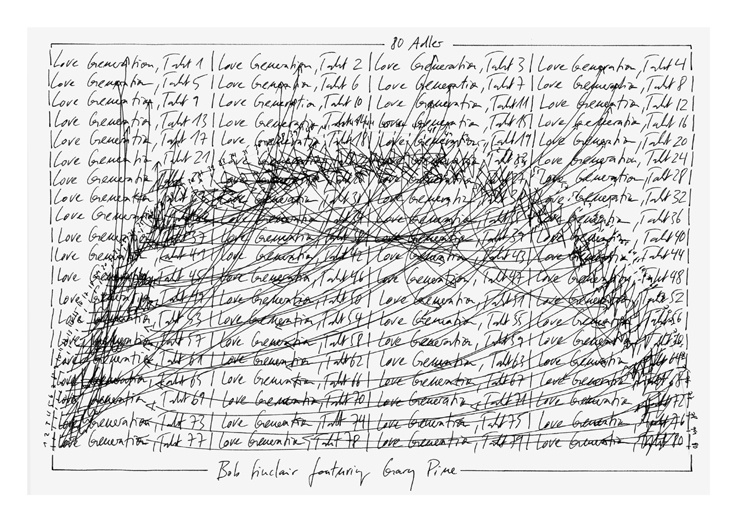 80 Adler
|Love Generation, Takt 1 | Love Generation, Takt 2 | Love Generation, Takt 3 | Love Generation, Takt 4 |
|Love Generation, Takt 5 | Love Generation, Takt 6 | Love Generation, Takt 7 | Love Generation, Takt 8 |
|Love Generation, Takt 9 | Love Generation, Takt 10 | Love Generation, Takt 11 | Love Generation, Takt 12 |
|Love Generation, Takt 13 | Love Generation, Takt | Love Generation, Takt 15 | Love Generation, Takt 16 |
|Love Generation, Takt 17 | Love Generation, Takt 18 | Love Generation, Takt 19 | Love Generation, Takt 20 |
|Love Generation, Takt 21 | Love Generation, | Love Generation, | Love Generation, Takt 24 |
|Love Generation, | Love Generation, | Love Generation, | Love Generation, Takt 28 |
|Love Generation, | Love Generation, Takt | Love Generation, | Love Generation, Takt 32 |
|Love Generation, | Love Generation, Takt | Love Generation, | Love Generation, Takt 36 |
|Love Generation, Takt 37 | Love Generation, Takt | Love Generation, Takt 39 | Love Generation, Takt 40 |
|Love Generation, Takt 41 | Love Generation, Takt 42 | Love Generation, Takt 43 | Love Generation, Takt 44 |
|Love Generation, Takt 45 | Love Generation, Takt 46 | Love Generation, Takt 47 | Love Generation, Takt 48 |
|Love Generation, Takt 49 | Love Generation, Takt 50 | Love Generation, Takt 51 | Love Generation, Takt 52 |
|Love Generation, Takt 53 | Love Generation, Takt 54 | Love Generation, Takt 55 | Love Generation, Takt 56 |
|Love Generation, Takt 57 | Love Generation, Takt 58 | Love Generation, Takt 59 | Love Generation, Takt |
|Love Generation, Takt 61 | Love Generation, Takt 62 | Love Generation, Takt 63 | Love Generation, Takt 64 |
|Love Generation, Takt 65 | Love Generation, Takt 66 | Love Generation, Takt 67 | Love Generation, Takt 68 |
|Love Generation, Takt 69 | Love Generation, Takt 70 | Love Generation, Takt 71 | Love Generation, Takt 72 |
|Love Generation, Takt 73 | Love Generation, Takt 74 | Love Generation, Takt 75 | Love Generation, Takt 76 |
|Love Generation, Takt 77 | Love Generation, Takt 78 | Love Generation, Takt 79 | Love Generation, Takt 80 |
Bob Sinclair featuring Gary Pine